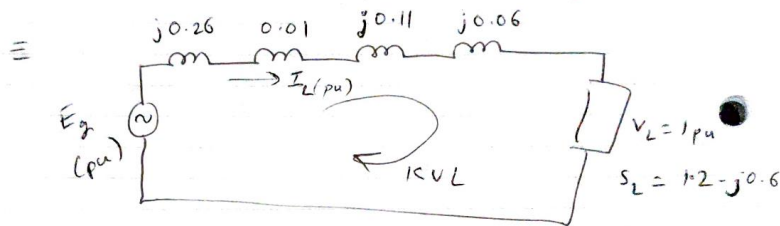 j0.26 0.01 j0.11 j0.06
≡
I_L(pu)
E_g
(pu)
KVL
V_L = 1 pu
S_L = 1.2 - j0.6